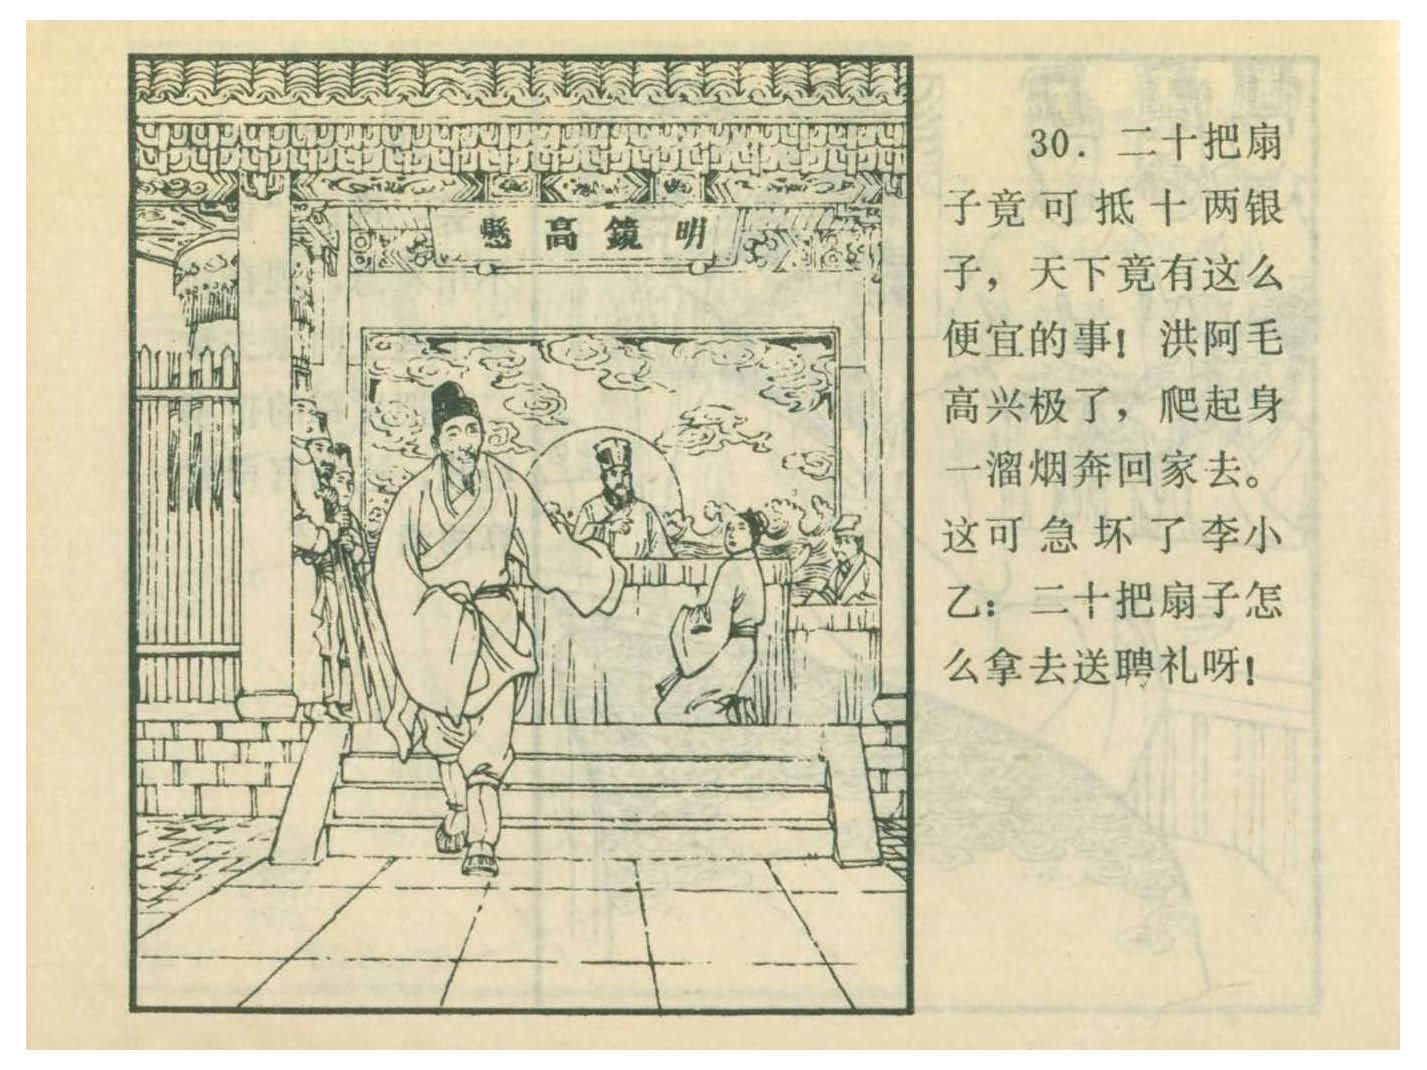 懸高鏡明
30．二十把扇
子竟可抵十两银
子，天下竟有这么
便宜的事！洪阿毛
高兴极了，爬起身
一溜烟奔回家去。
这可急坏了李小
乙：二十把扇子怎
么拿去送聘礼呀！